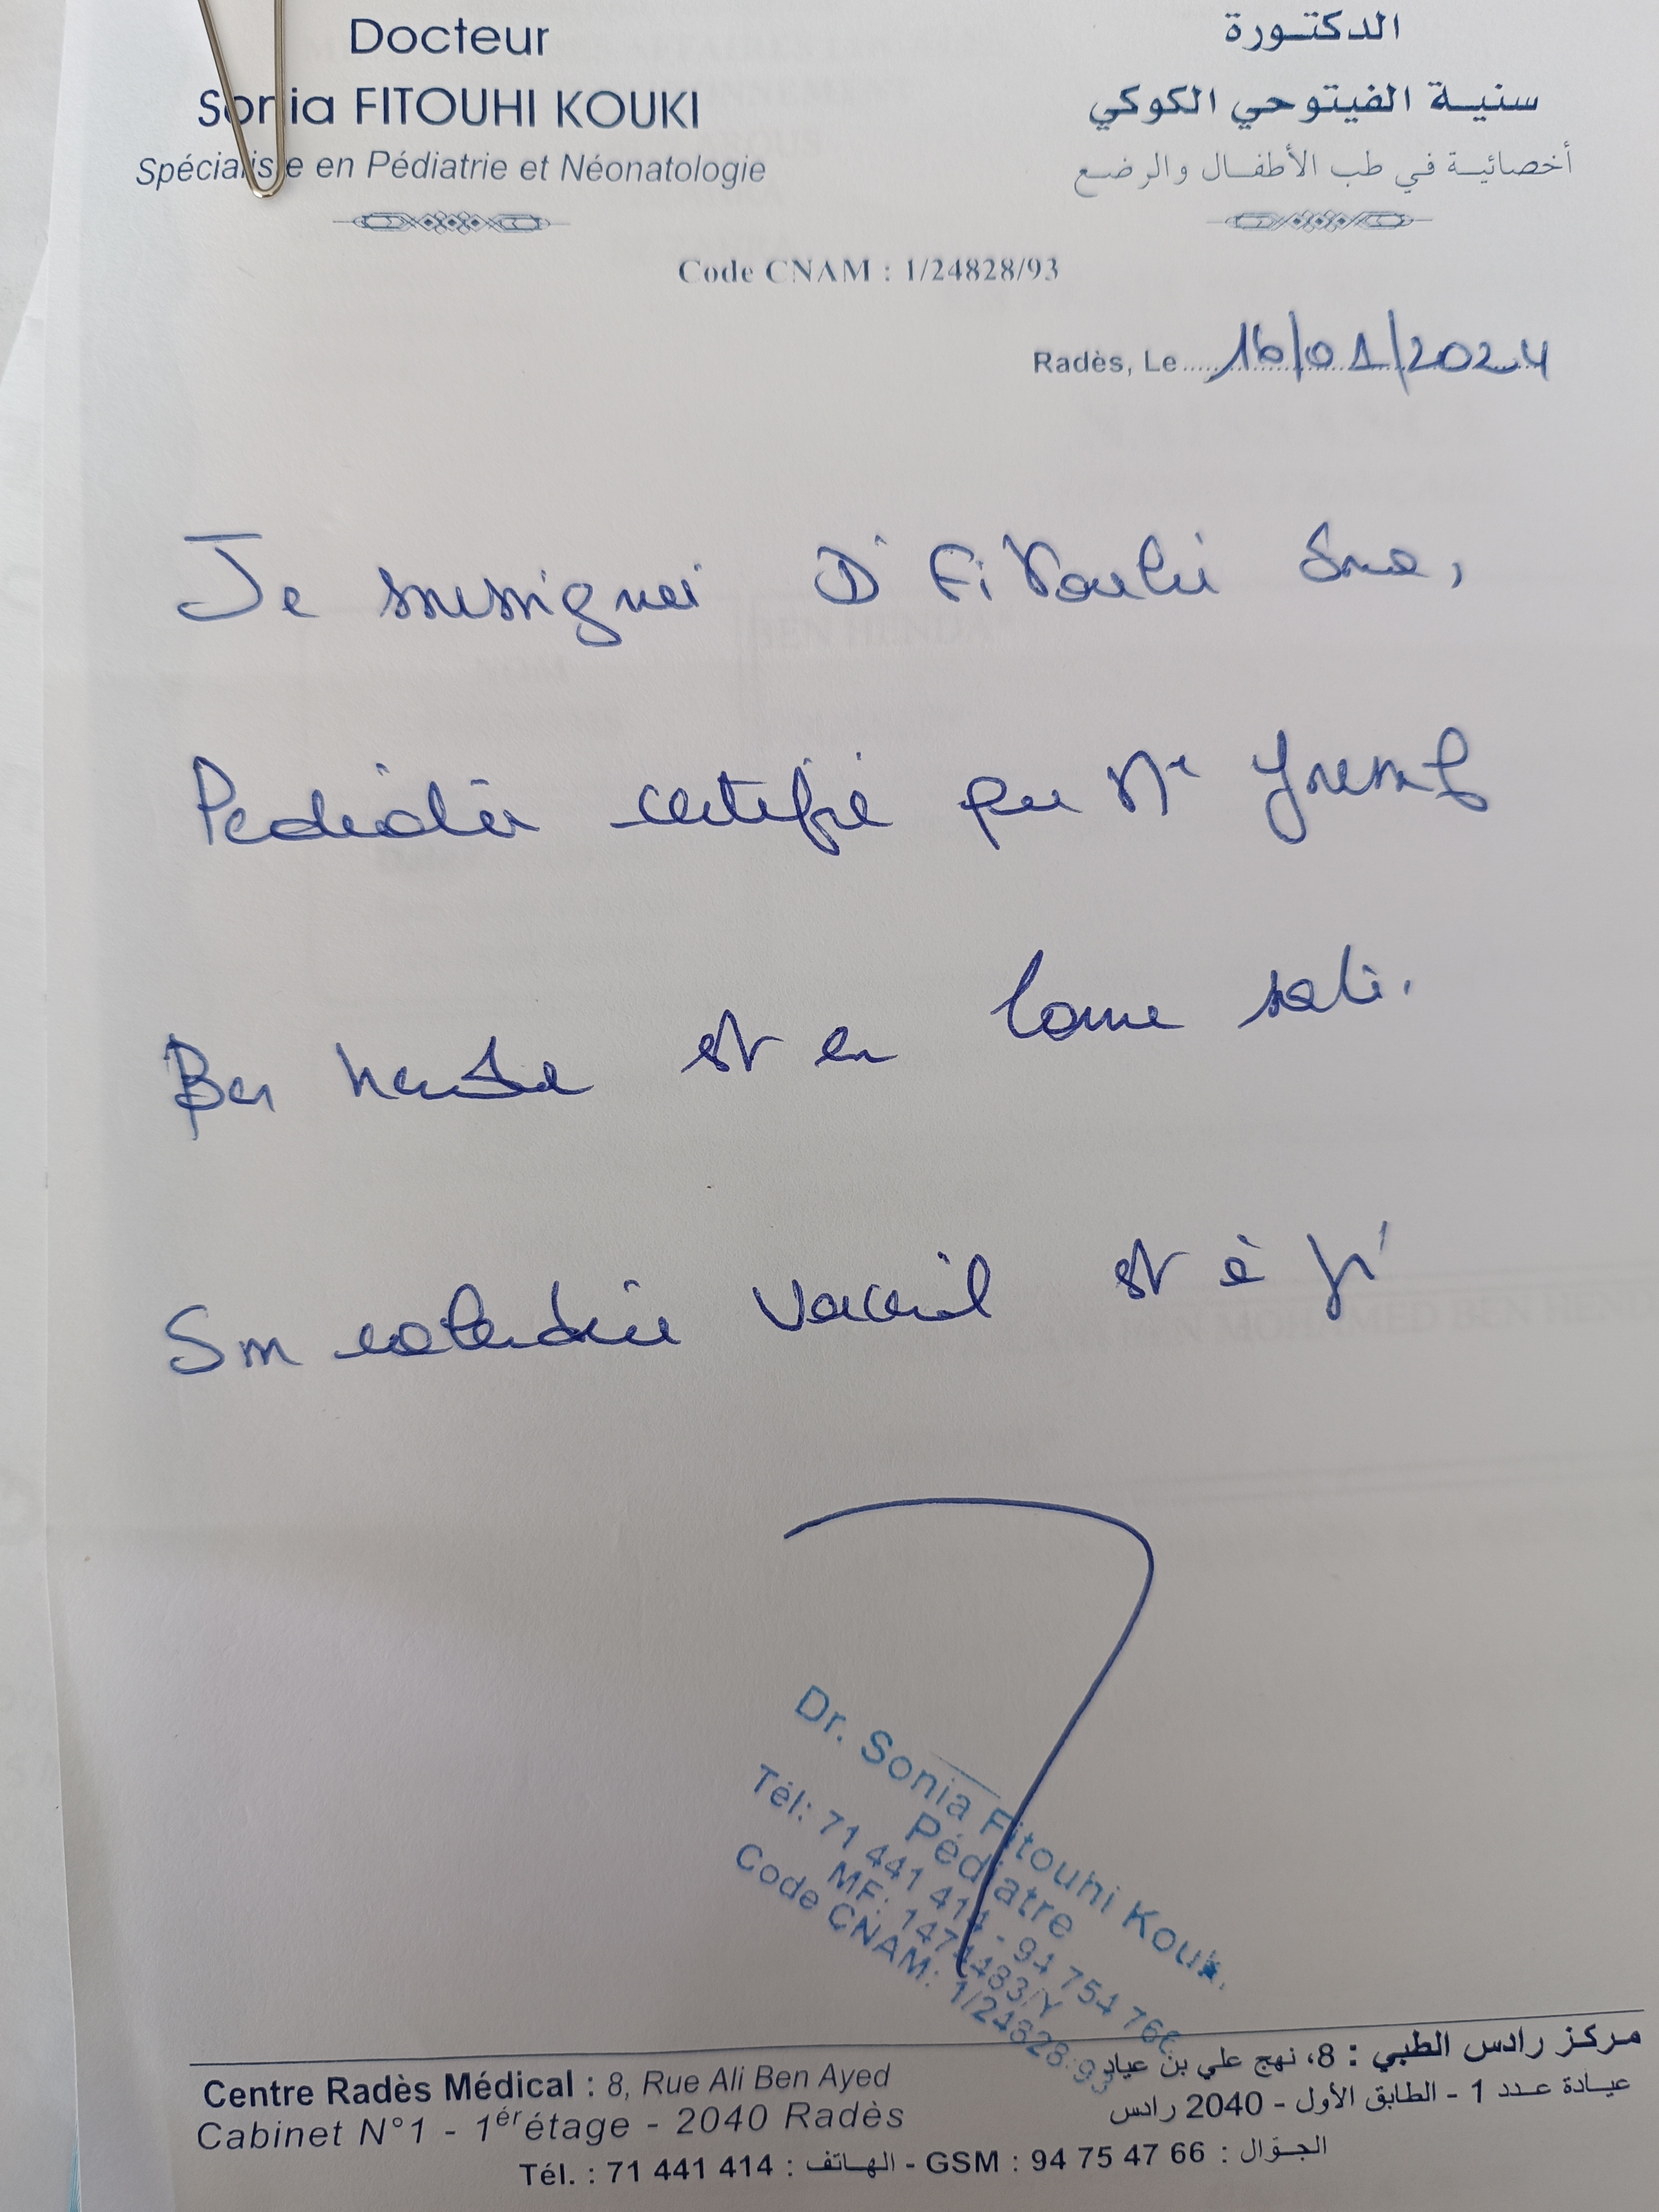 Docteur
Sonia FITOUHI KOUKI
Spécialiste en Pédiatrie et Néonatologie
الدكتورة
سنية الفيتوحي الكوكي
أخصائية في طب الأطفال والرضع
Code CNAM : 1/24828/93
Radès, Le 16/01/2024
Je soussigné Dr Fitouhi Sonia,
Pédiatre certifie que Mr Youssef
Ben henda est en bonne santé.
Son calendrier vaccinal est à jour
Dr. Sonia Fitouhi Kouki
Pédiatre
Tél: 71 441 414 - 94 754 766
MF: 1474483/Y
Code CNAM: 1/24828/93
Centre Radès Médical : 8, Rue Ali Ben Ayed
Cabinet N°1 - 1ér étage - 2040 Radès
مركز رادس الطبي : 8، نهج علي بن عياد
عيادة عدد 1 - الطابق الأول - 2040 رادس
Tél. : 71 441 414 : الهاتف - GSM : 94 75 47 66 : الجوّال